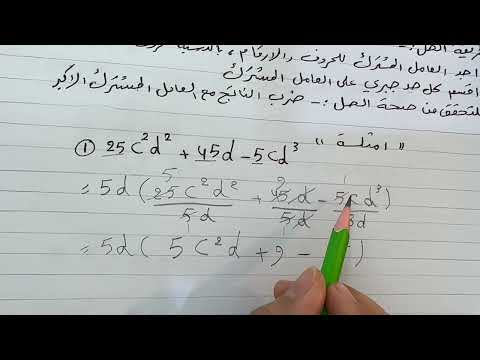 احد العامل المشترك للحروف والارقام، بالنسبة
اقسم كل حد جبري على العامل المشترك
للتحقق من صحة الحل :- ضرب الناتج مع العامل المشترك الاكبر
" امثلة "
① 25c²d² + 45d - 5cd³
= 5d ( 25c²d² / 5d + 45d / 5d - 5cd³ / 3d )
= 5d ( 5c²d + 9 - )